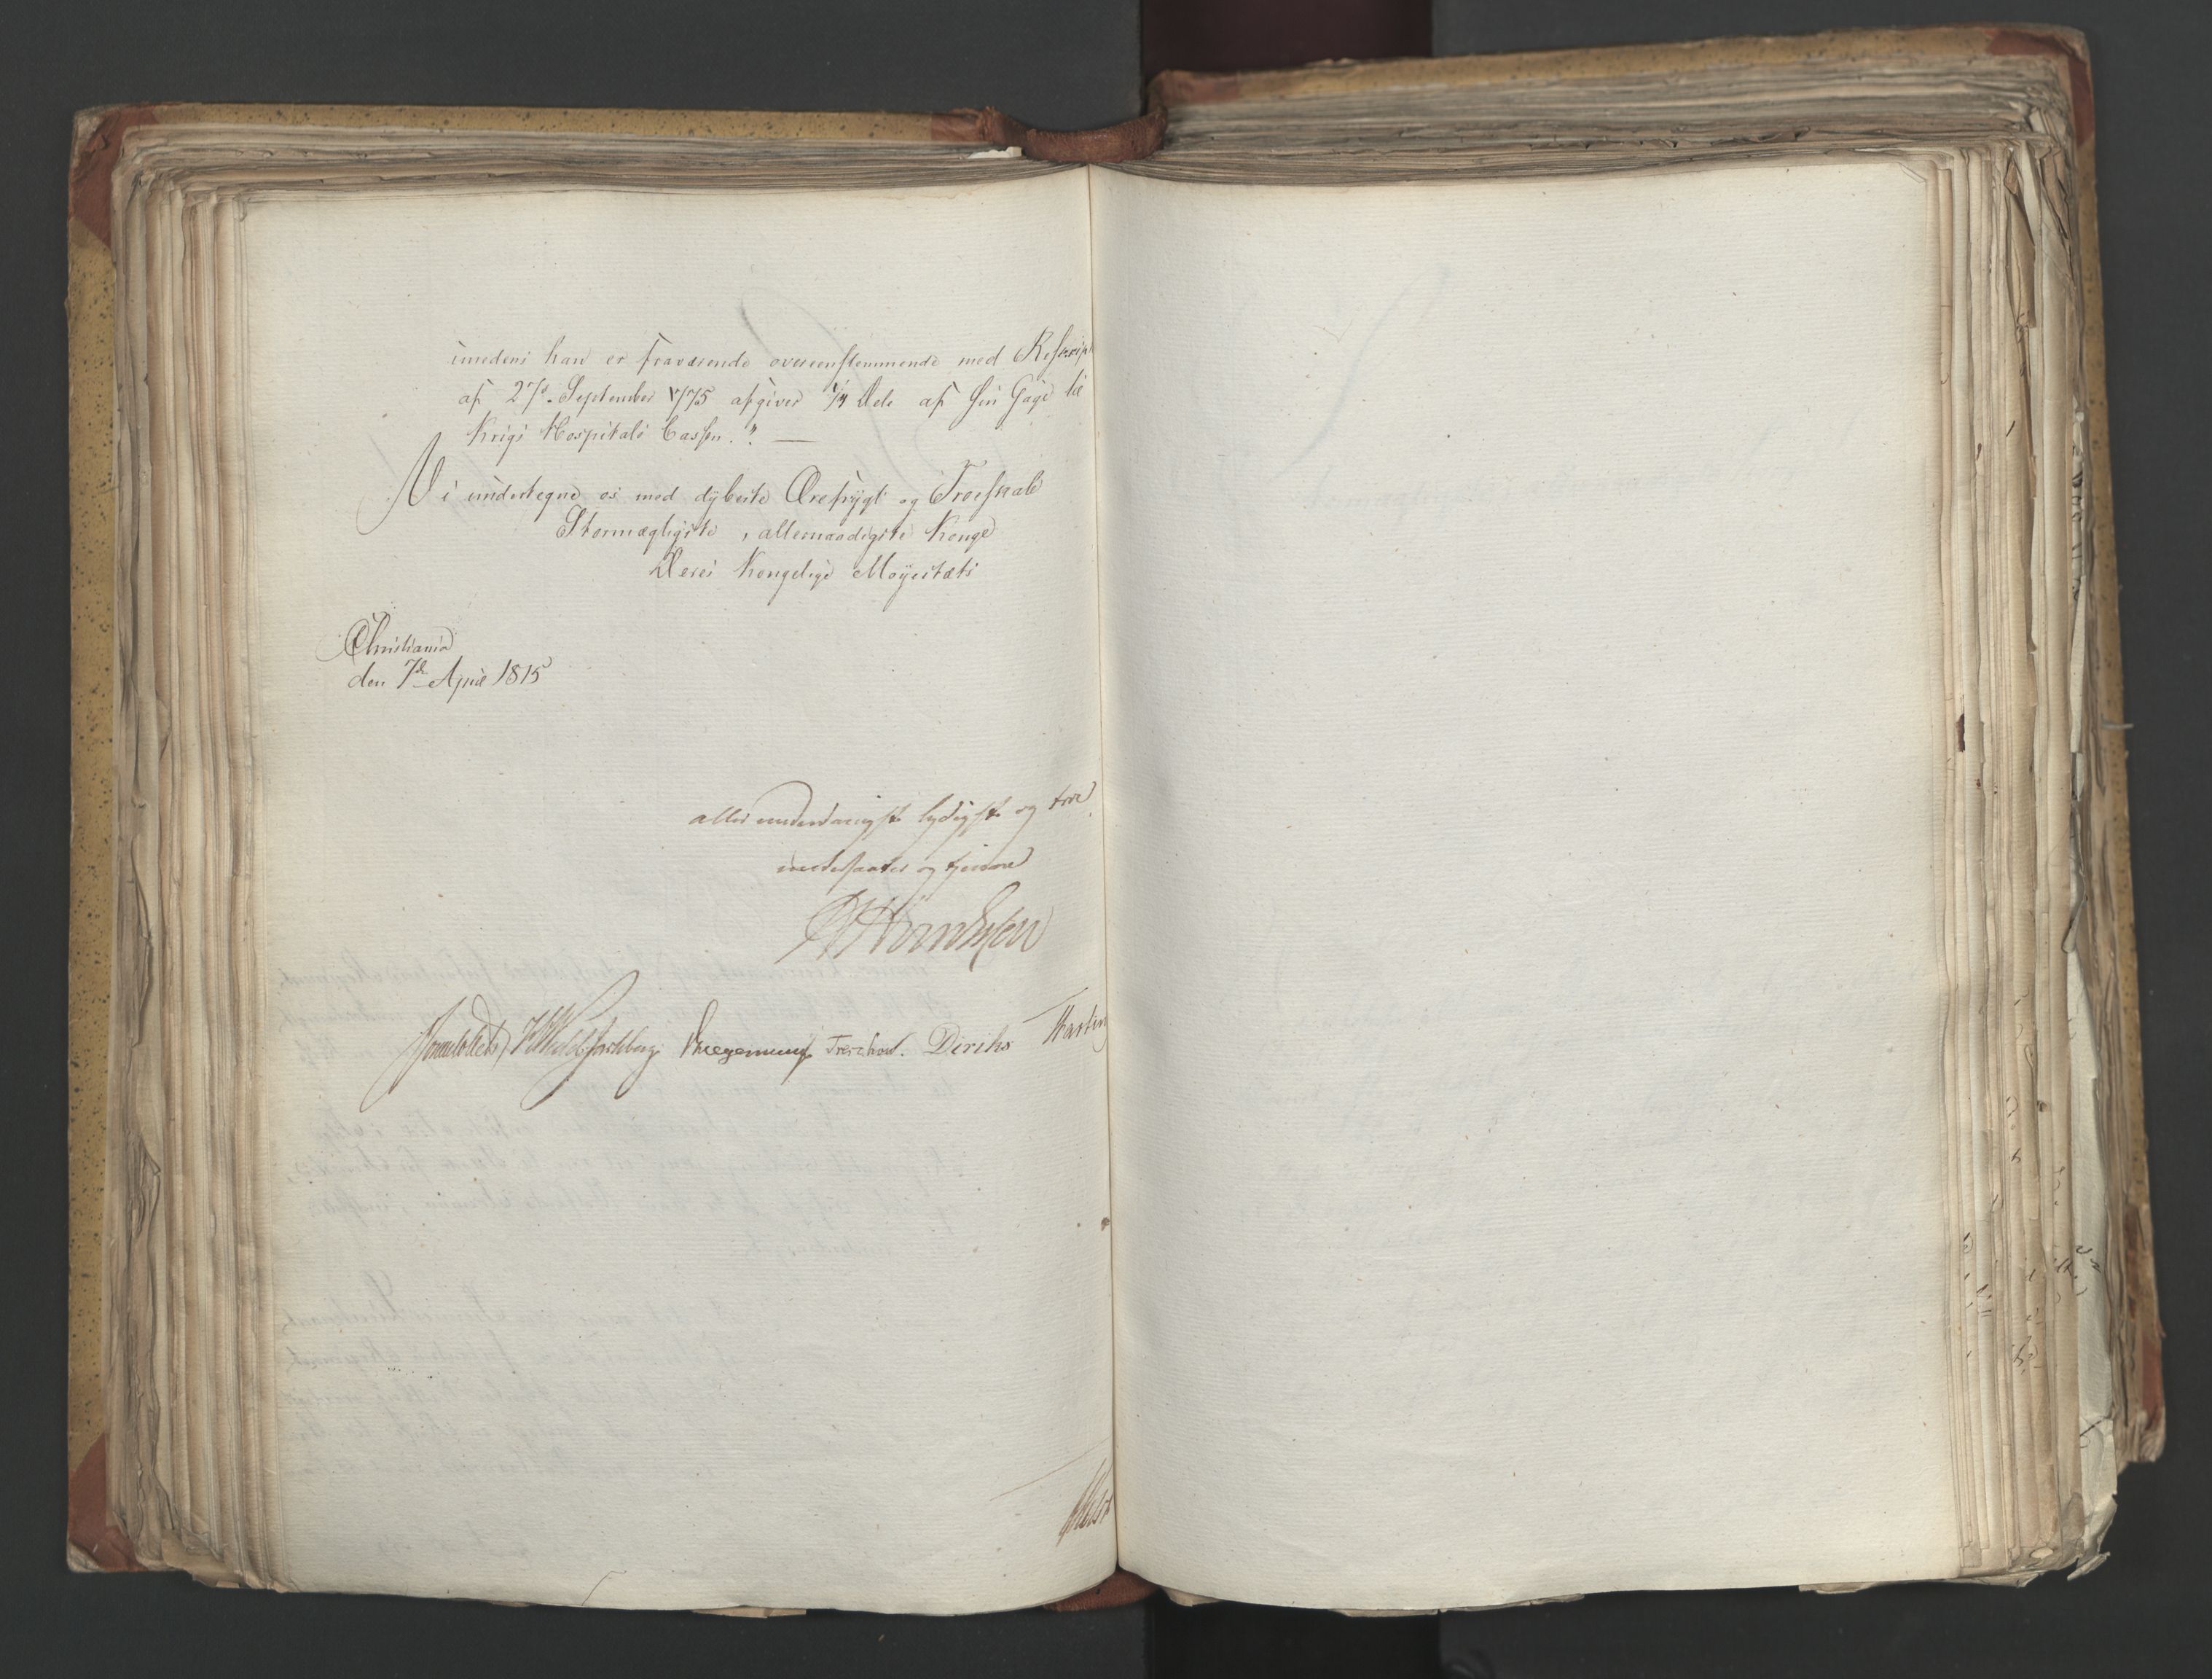 imedens han er fraværende overeensstemmende med Rescript
af 27de September 1775 afgiver 1/4 Dele af sin Gage til
Krigs Hospitals Cassen."
Vi undertegne os med dybeste Ærefrygt og Troeskab
Stormægtigste, allernaadigste Konge
Deres Kongelige Mayestæts
Christiania
den 7de April 1815
allerunderdanigste lydigste og troe
undersaatter og tjenere
Sommerhielm
Wedel Jarlsberg Krogemunk Treschow. Diriks Hartwig
Holst